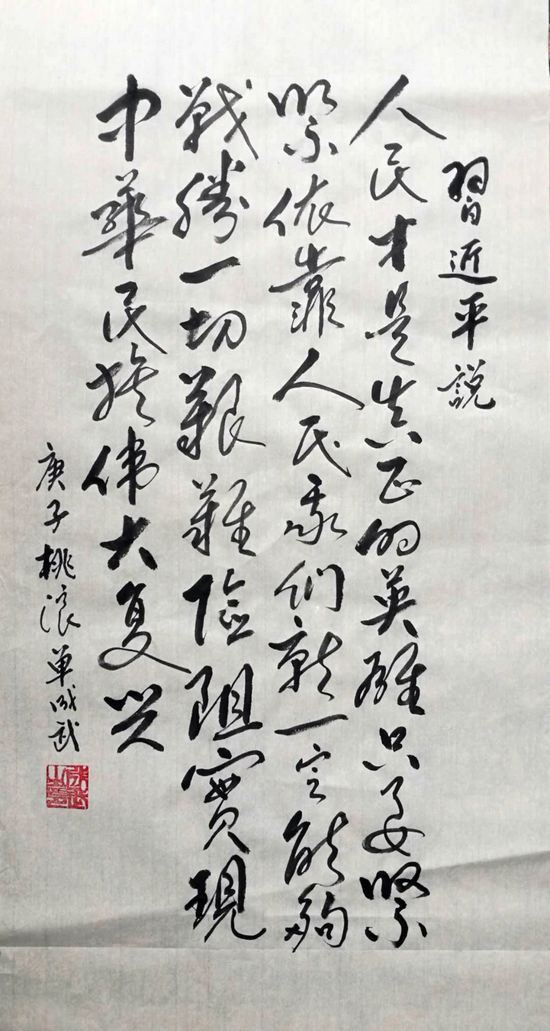 習近平説
人民才是真正的英雄只要緊
緊依靠人民我們就一定能夠
戰勝一切艱難險阻實現
中華民族偉大复兴
庚子桃浪单成武